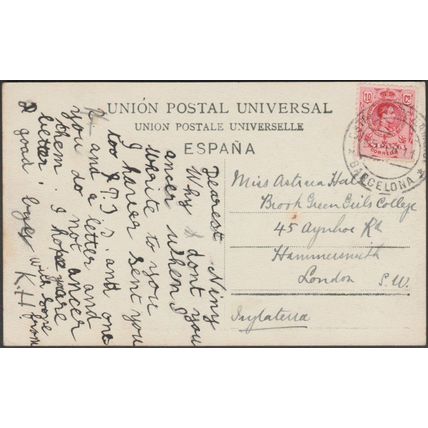 UNIÓN POSTAL UNIVERSAL
UNION POSTALE UNIVERSELLE
ESPAÑA
10 Cs
CORREOS
BARCELONA
Dearest Niny
Why dont you
ancer when I
write to you
I haver sent you
too P.T.S. and one
and a letter and
you do not ancer
them. I hope you are
better.
good bye with love from
K.H
Miss Astraea Hall
Brook Green Girls College
45 Aynhoe Rd
Hammersmith
London S.W.
Inglaterra